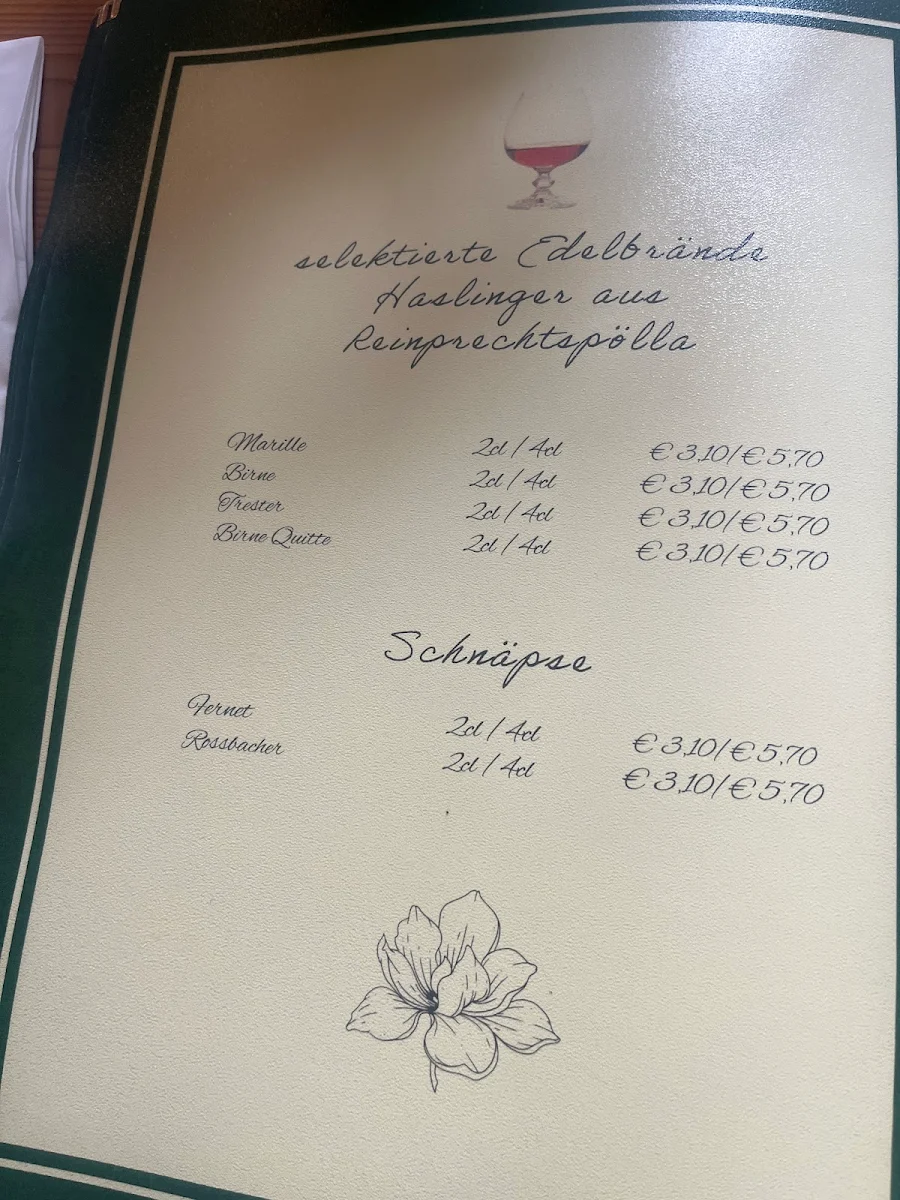 selektierte Edelbrände
Haslinger aus
Reinprechtspölla
Marille 2cl / 4cl € 3,10/€ 5,70
Birne 2cl / 4cl € 3,10/€ 5,70
Trester 2cl / 4cl € 3,10/€ 5,70
Birne Quitte 2cl / 4cl € 3,10/€ 5,70
Schnäpse
Fernet 2cl / 4cl € 3,10/€ 5,70
Rossbacher 2cl / 4cl € 3,10/€ 5,70